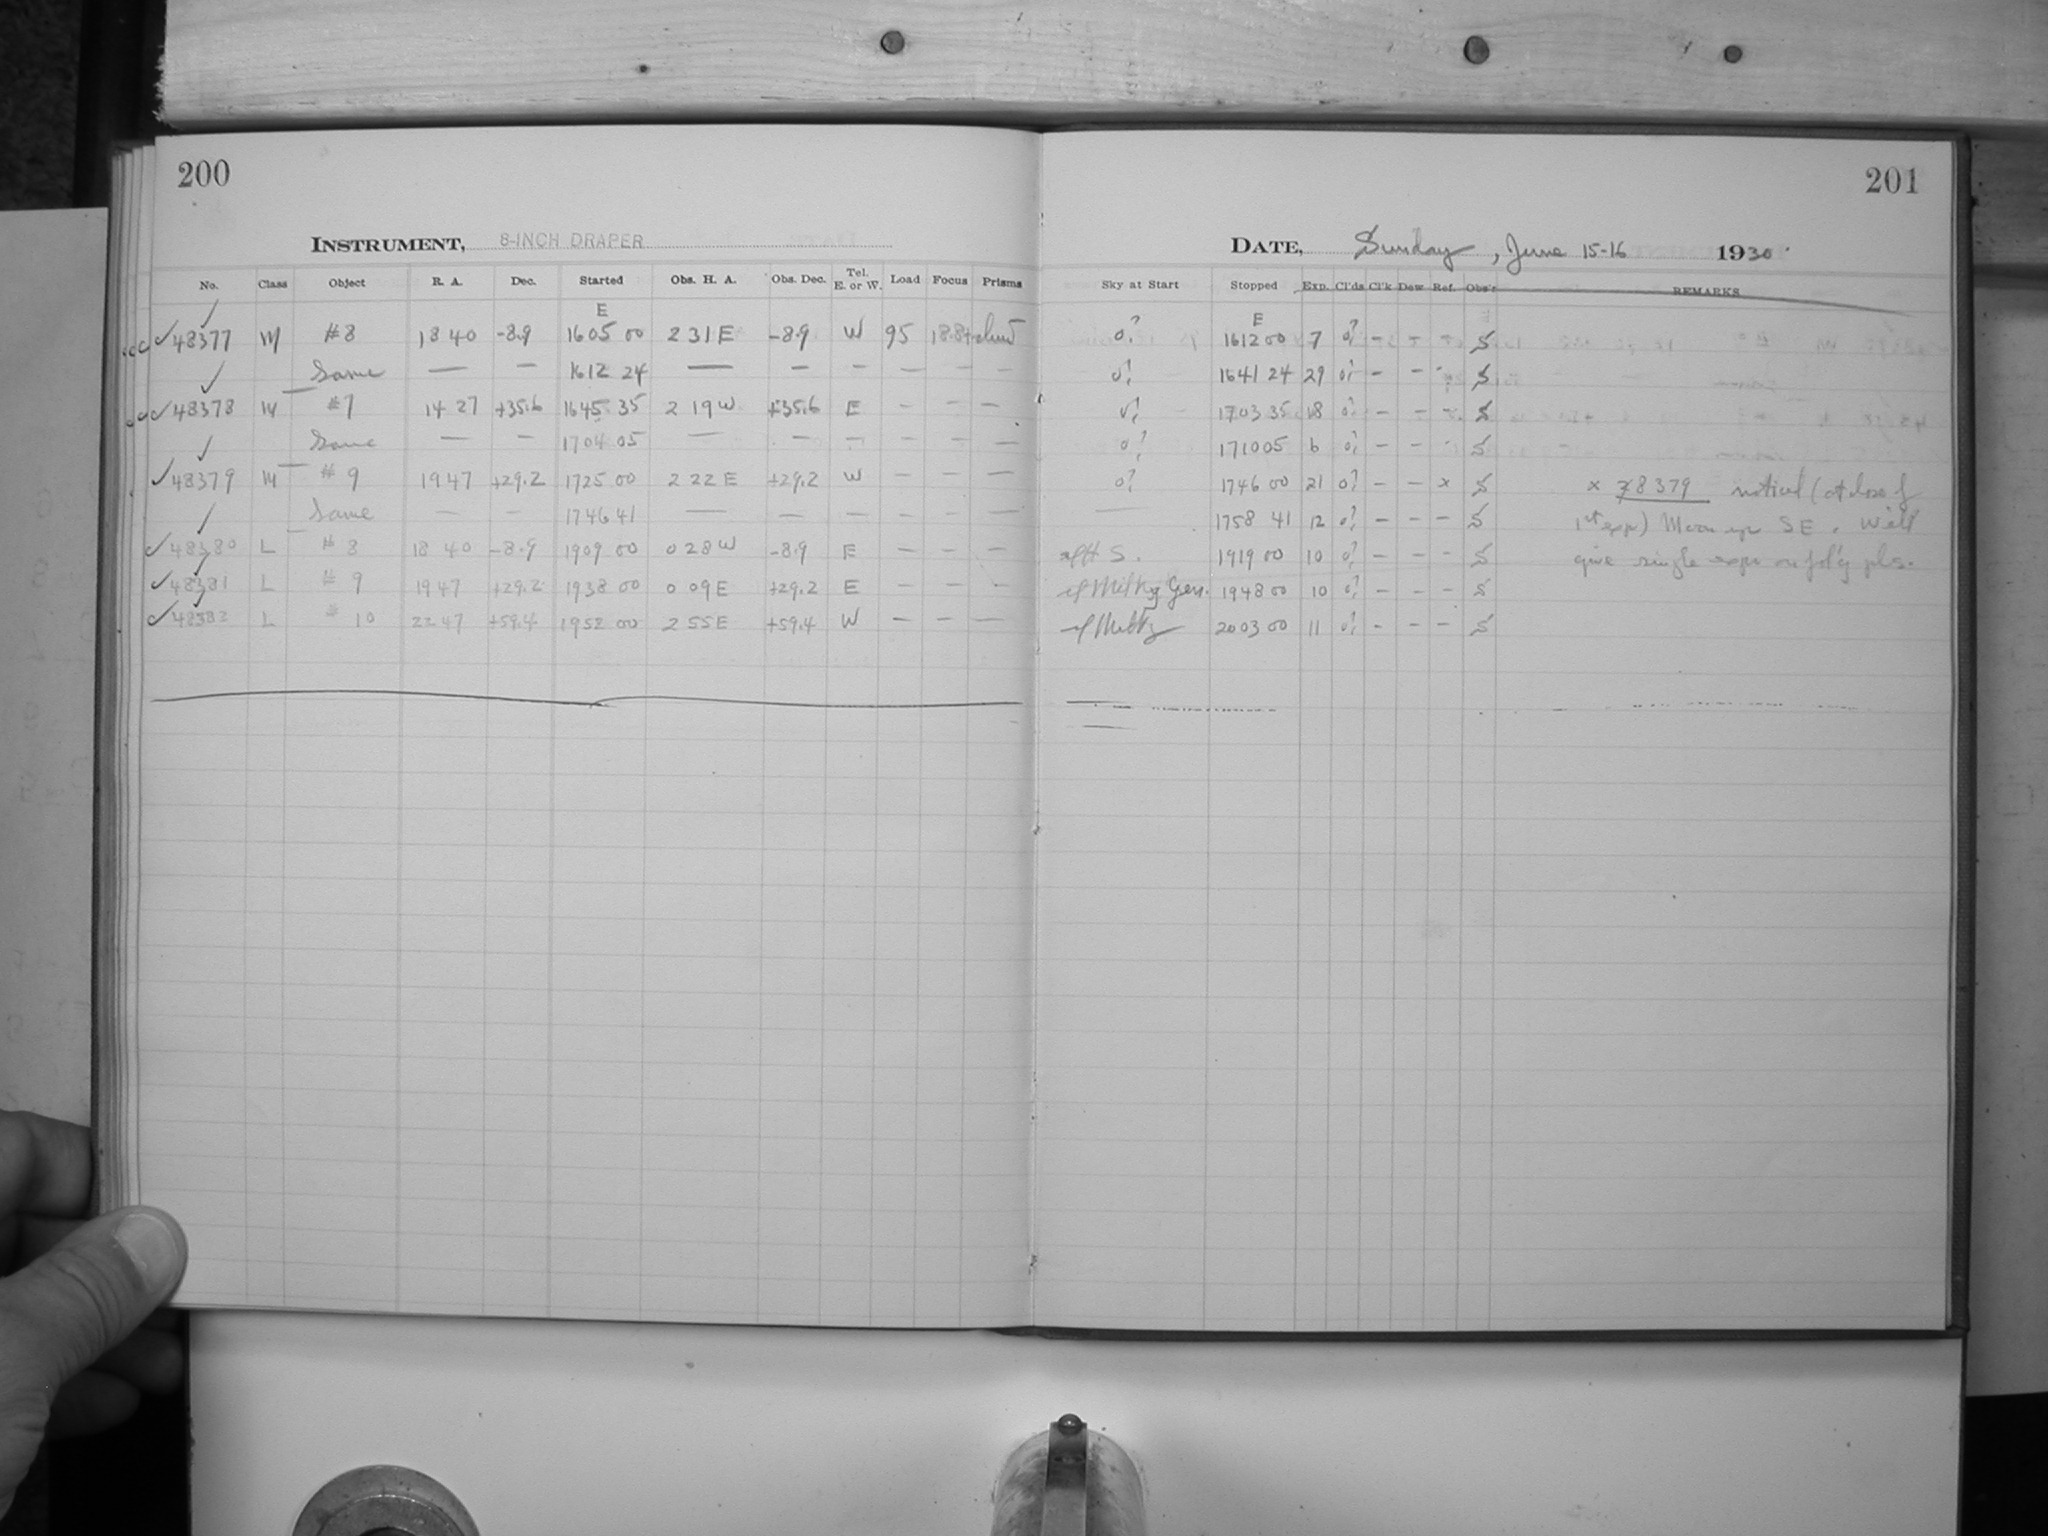 200
INSTRUMENT, 8-INCH DRAPER
No. Class Object R. A. Dec. Started Obs. H. A. Obs. Dec. Tel. E. or W. Load Focus Prisms
E
48377 M #8 18 40 -8.9 1605 00 2 31 E -8.9 W 95
Same — — 1612 24 — — — — — —
48378 M #7 14 27 +35.6 1645 35 2 19 W +35.6 E — — —
Same — — 1704 05 — — — — — —
48379 M #9 19 47 +29.2 1725 00 2 22 E +29.2 W — — —
Same — — 1746 41 — — — — — —
48380 L #8 18 40 -8.9 1909 00 0 28 W -8.9 E — — —
48381 L #9 19 47 +29.2 1938 00 0 09 E +29.2 E — — —
48382 L #10 22 47 +59.4 1952 00 2 55 E +59.4 W — — —
201
DATE, Sunday, June 15-16 1930
Sky at Start Stopped Exp. Cl'ds Cl'k Dew Ref. Obs'r REMARKS
E
0? 1612 00 7 0? — — — S
0? 1641 24 29 0? — — - S
0? 1703 35 18 0? — — — S
0? 1710 05 6 0? — — - S
0? 1746 00 21 0? — — x S x 78379 noticed (at close of
— 1758 41 12 0? — — — S 1st exp) Moon up SE. Will
S. 1919 00 10 0? — — — S give single expr on fol'g pls.
Milky Gen. 1948 00 10 0? — — — S
Milky 2003 00 11 0? - — — S